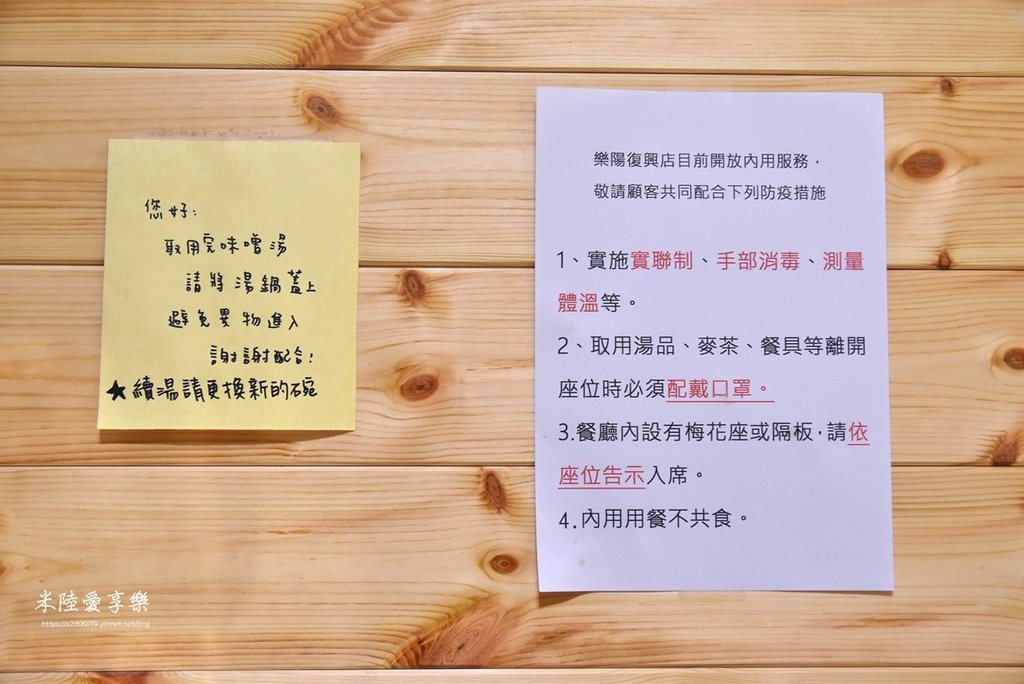 您好:
取用完味噌湯
請將湯鍋蓋上
避免異物進入
謝謝配合!
★續湯請更換新的碗
樂陽復興店目前開放內用服務，
敬請顧客共同配合下列防疫措施
1、實施實聯制、手部消毒、測量
體溫等。
2、取用湯品、麥茶、餐具等離開
座位時必須配戴口罩。
3.餐廳內設有梅花座或隔板，請依
座位告示入席。
4.內用用餐不共食。
米陸愛享樂
https://s2906074.pixnet.net/blog